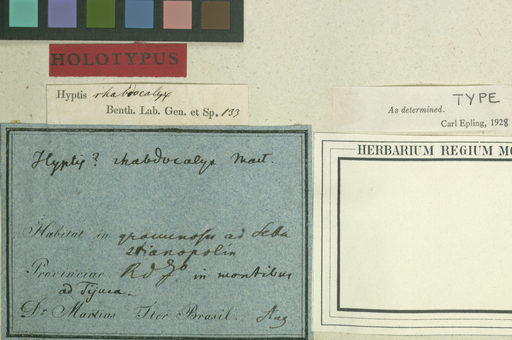 HOLOTYPUS
Hyptis rhabdocalyx
Benth. Lab. Gen. et Sp. 133
TYPE
As determined.
Carl Epling, 1928
Hyptis? rhabdocalyx Mart.
Habitat in graminosis ad Seba
stianopolin
Provinciae Rd Jo in montibus
ad Tijuca.
Dr Martius Iter Brasil. Aug
HERBARIUM REGIUM MO